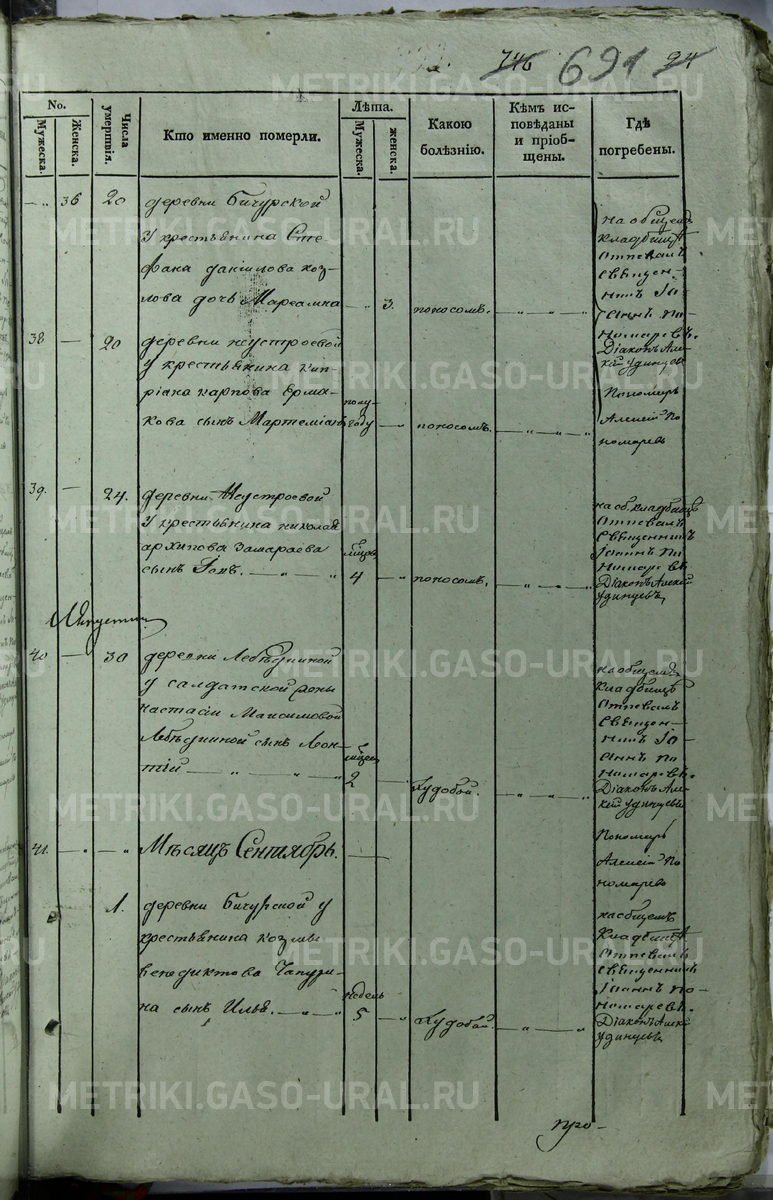 746 691 94
No.
Мужеска.
Женска.
Числа умертвія.
Кто именно померли.
Лѣта.
Мужеска.
женска.
Какою болѣзнію.
Кѣмъ исповѣданы и пріобщены.
Гдѣ погребены.
36 20 деревни Бичурской
у крестьянина Сте
фана данилова коз-
лова дочь Мареамна 3. поносомъ.
на общемъ
кладбищѣ
Отпевалъ
Священ-
никъ Іо-
аннъ По-
номаревъ.
38 — 20 деревни неустроевой
у крестьянина кип-
ріана карпова Ерма-
кова сынъ Мартеміанъ
полу-
году поносомъ.
Діаконъ Але
ксій удинцевъ
Пономарь
Алексій По
номаревъ
39. — 24. деревни Неустроевой
у крестьянина николая
архипова Замараева
сынъ Іовъ.
4 поносомъ.
на об кладбищѣ
Отпевалъ
Священникъ
Іоаннъ По
номаревъ
Діаконъ Алексій
удинцевъ
Августъ
40 — 30 деревни Лебѣдкиной
у салдатской жены
настасіи Максимовой
Лебѣдкиной сынъ Леон-
тій
2 Худобой.
на общемъ
кладбищѣ
Отпевалъ
Священ-
никъ Іо-
аннъ По
номаревъ.
Діаконъ Але
ксій удинцевъ
Пономарь
Алексій По
номаревъ
41. Мѣсяцъ Сентябрь.
1. деревни Бичурской у
крестьянина козмы
венедиктова Чапури-
на сынъ Илья.
недель
5 Худобой.
на общемъ
кладбищѣ
Отпевалъ
Священникъ
Іоаннъ По-
номаревъ.
Діаконъ Алексій
удинцевъ
про-
METRIKI.GASO-URAL.RU